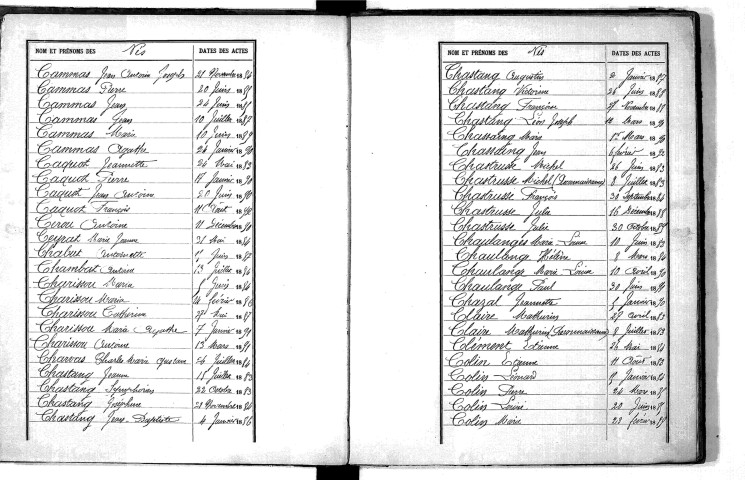 NOM ET PRÉNOMS DES Nés DATES DES ACTES
Cammas Jean Antoine Joseph 21 Novembre 1884
Cammas Pierre 20 Juin 18
Cammas Jean 24 Juin 18
Cammas Jean 10 Juillet 1887
Cammas Marie 10 Juin 1889
Cammas Agathe 24 Janvier 1890
Caquot Jeannette 24 Mai 1883
Caquot Pierre 17 Janvier 18
Caquot Jean Antoine 20 Juin 1890
Caquot François Août 1890
Cirou Antoine 11 Décembre 1890
Ceyrat Marie Jeanne 31 Mai 1884
Chabut Antoinette Juin 1882
Chambat Antoine 13 Juillet 1886
Charissou Maria Juin 1884
Charissou Maria 14 février 1886
Charissou Catherine Mai 1887
Charissou Marie Agathe 7 Janvier 1891
Charissou Antoine 13 Mars 1891
Charvas Charles Marie Gustave 26 Juillet 1884
Chastang Jeanne 15 Juillet 1883
Chastang Symphorien 22 Octobre 1883
Chastang Joséphine 21 Novembre 1884
Chastang Jean-Baptiste 4 Janvier 1886
NOM ET PRÉNOMS DES Nés DATES DES ACTES
Chastang Augustin 2 Janvier 1887
Chastang Victorine 26 Juin 1888
Chastang Françoise 27 Novembre 1888
Chastang Léon Joseph 14 Mars 1890
Chassaing Marie Mars 1890
Chassaing Jean 6 février 1892
Chastrusse Michel 26 Juin 1883
Chastrusse Michel (Reconnaissance) 8 Juillet 1883
Chastrusse François 30 Septembre 1884
Chastrusse Julie 16 Décembre 1888
Chastrusse Julie 30 Octobre 1889
Chaulanges Marie Louise 10 Juin 1883
Chaulange Hélène 8 Mars 1884
Chaulange Marie Louise 10 Avril 1890
Chaulange Paul 30 Juin 1890
Chazal Jeannette 5 Janvier 1890
Claire Mathurin 29 Avril 1883
Claire Mathurin (Reconnaissance) 8 Juillet 1883
Clément Etienne 24 Mai 1884
Colin Etienne 11 Août 1883
Colin Léonard Janvier 1884
Colin Pierre 24 Mars 18
Colin Louise 20 Juin 18
Colin Marie 28 février 18